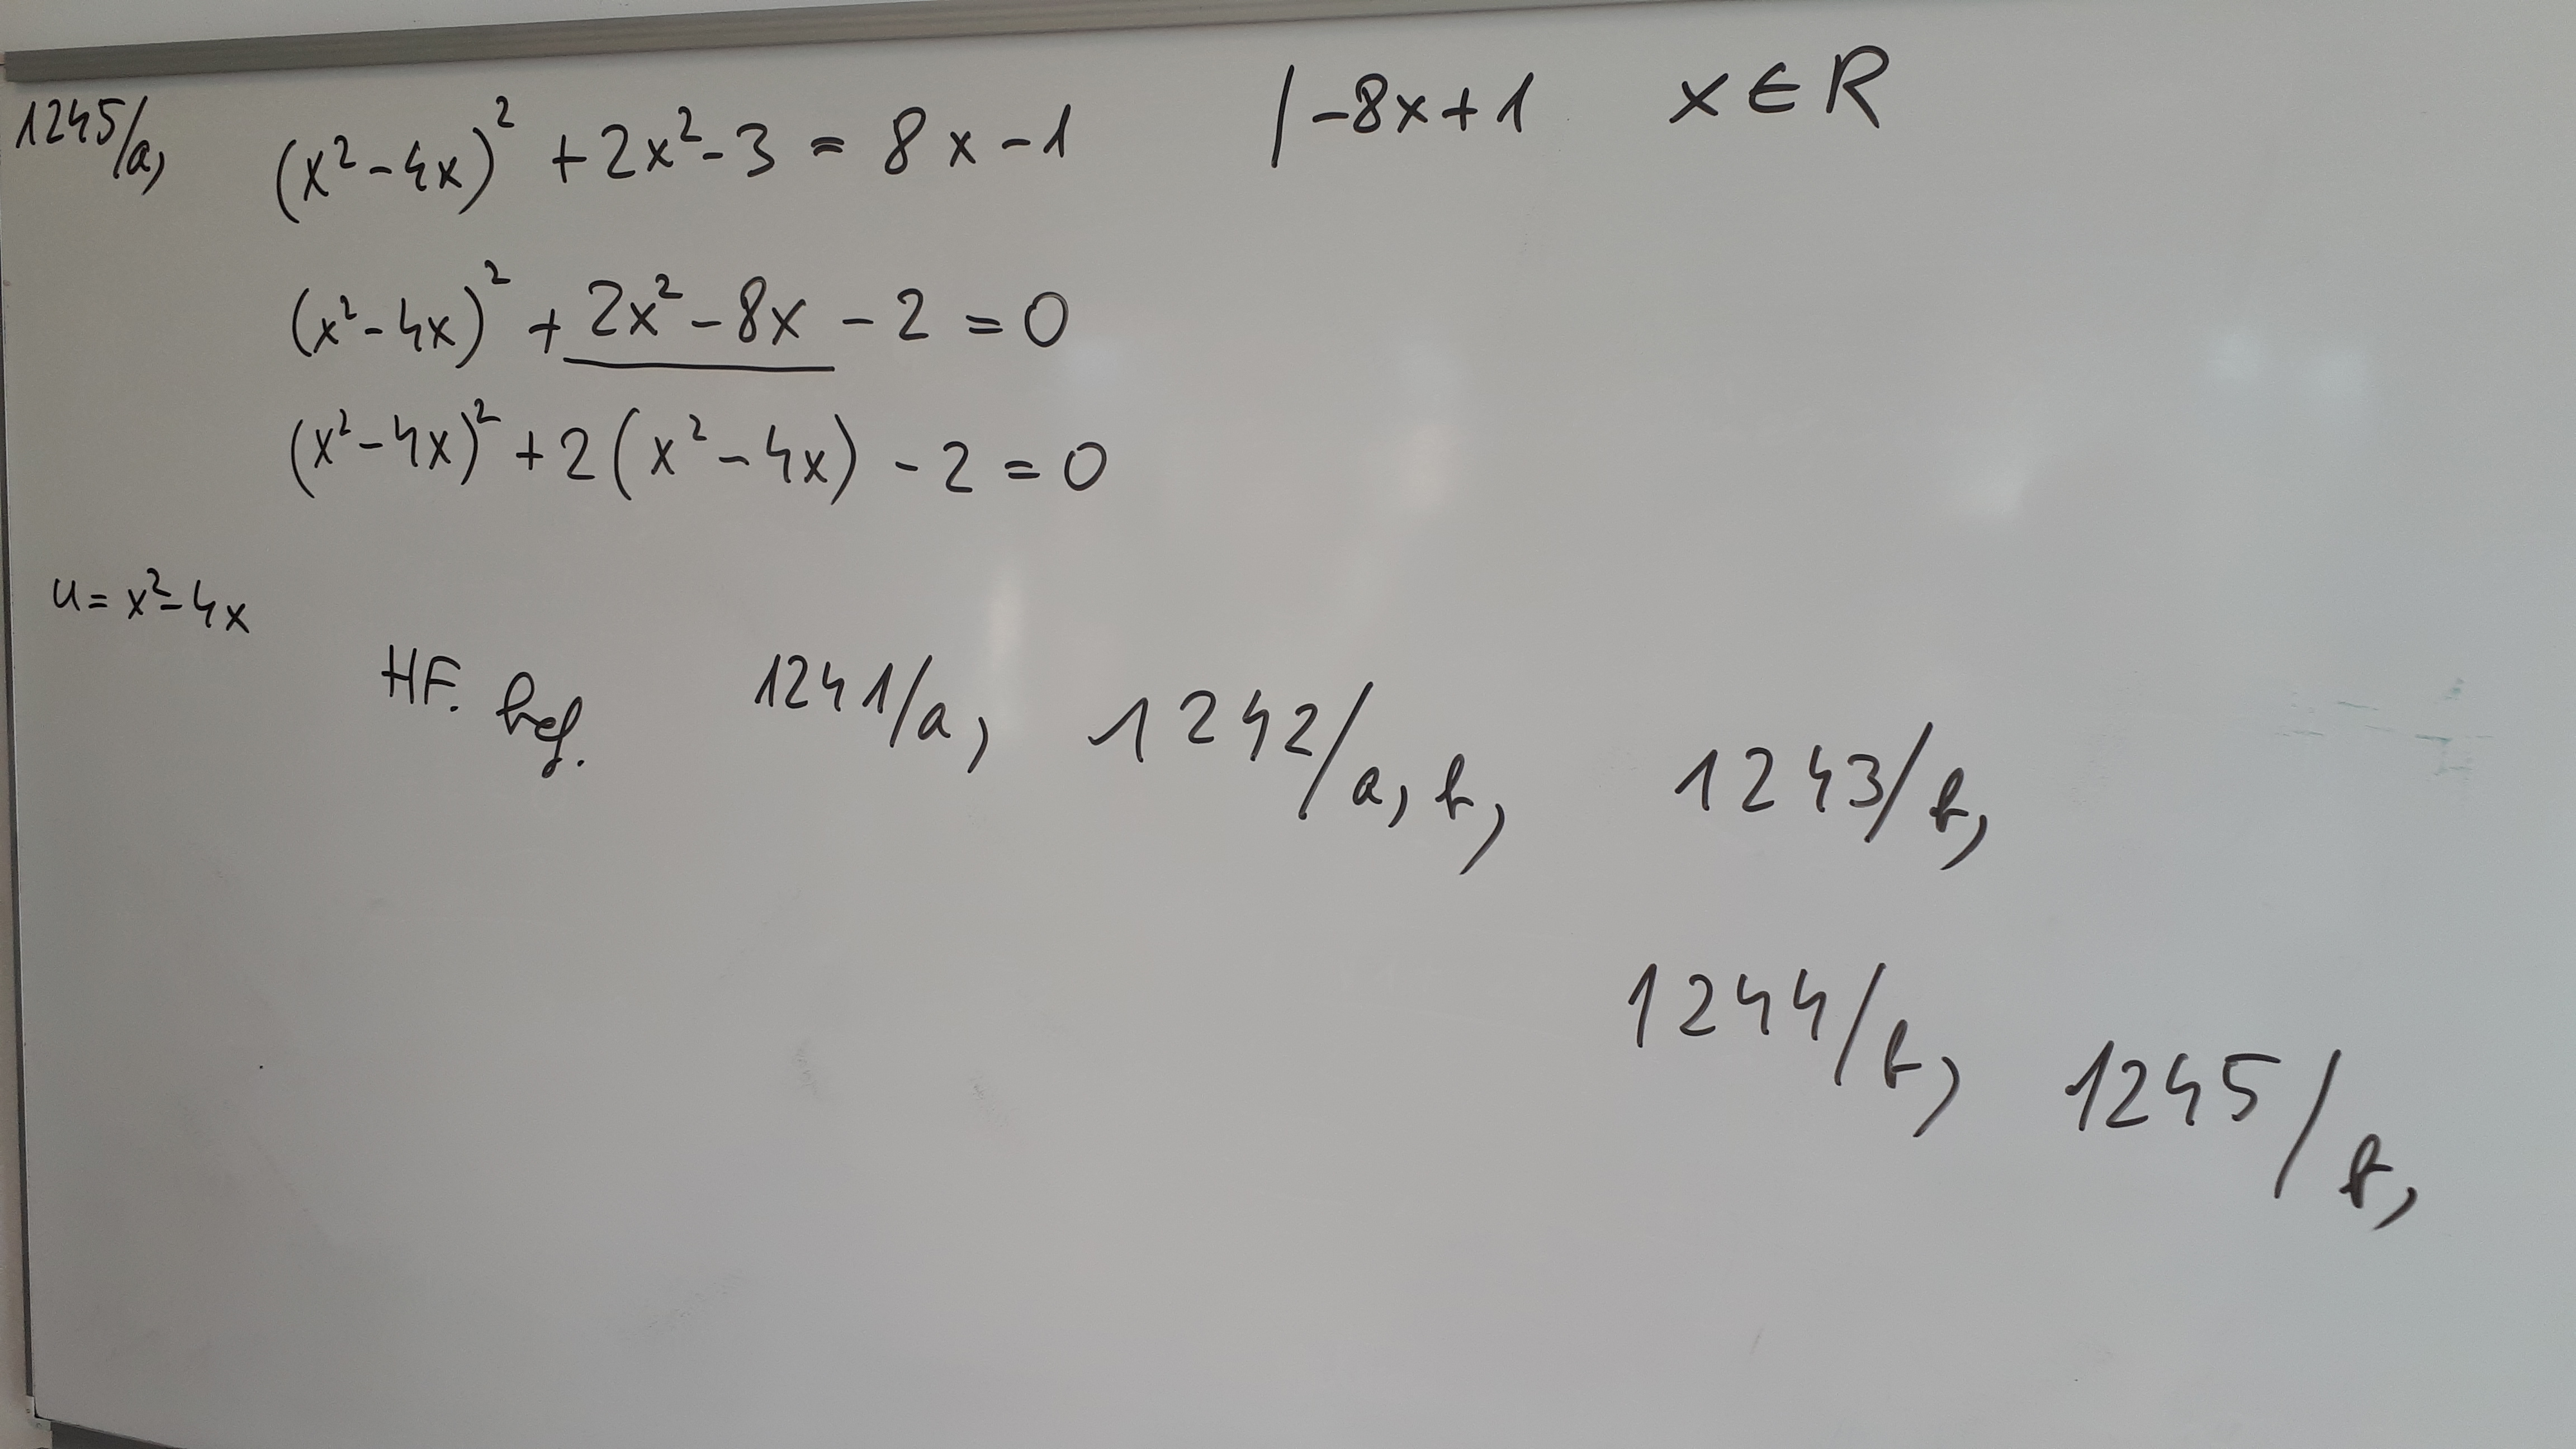 1245/a, (x²-4x)² +2x²-3 = 8x-1 |-8x+1 x∈R
(x²-4x)² + 2x²-8x - 2 = 0
(x²-4x)² +2(x²-4x) - 2 = 0
u= x²-4x
HF. bef. 1241/a, 1242/a, b, 1243/b,
1244/b, 1245/b,